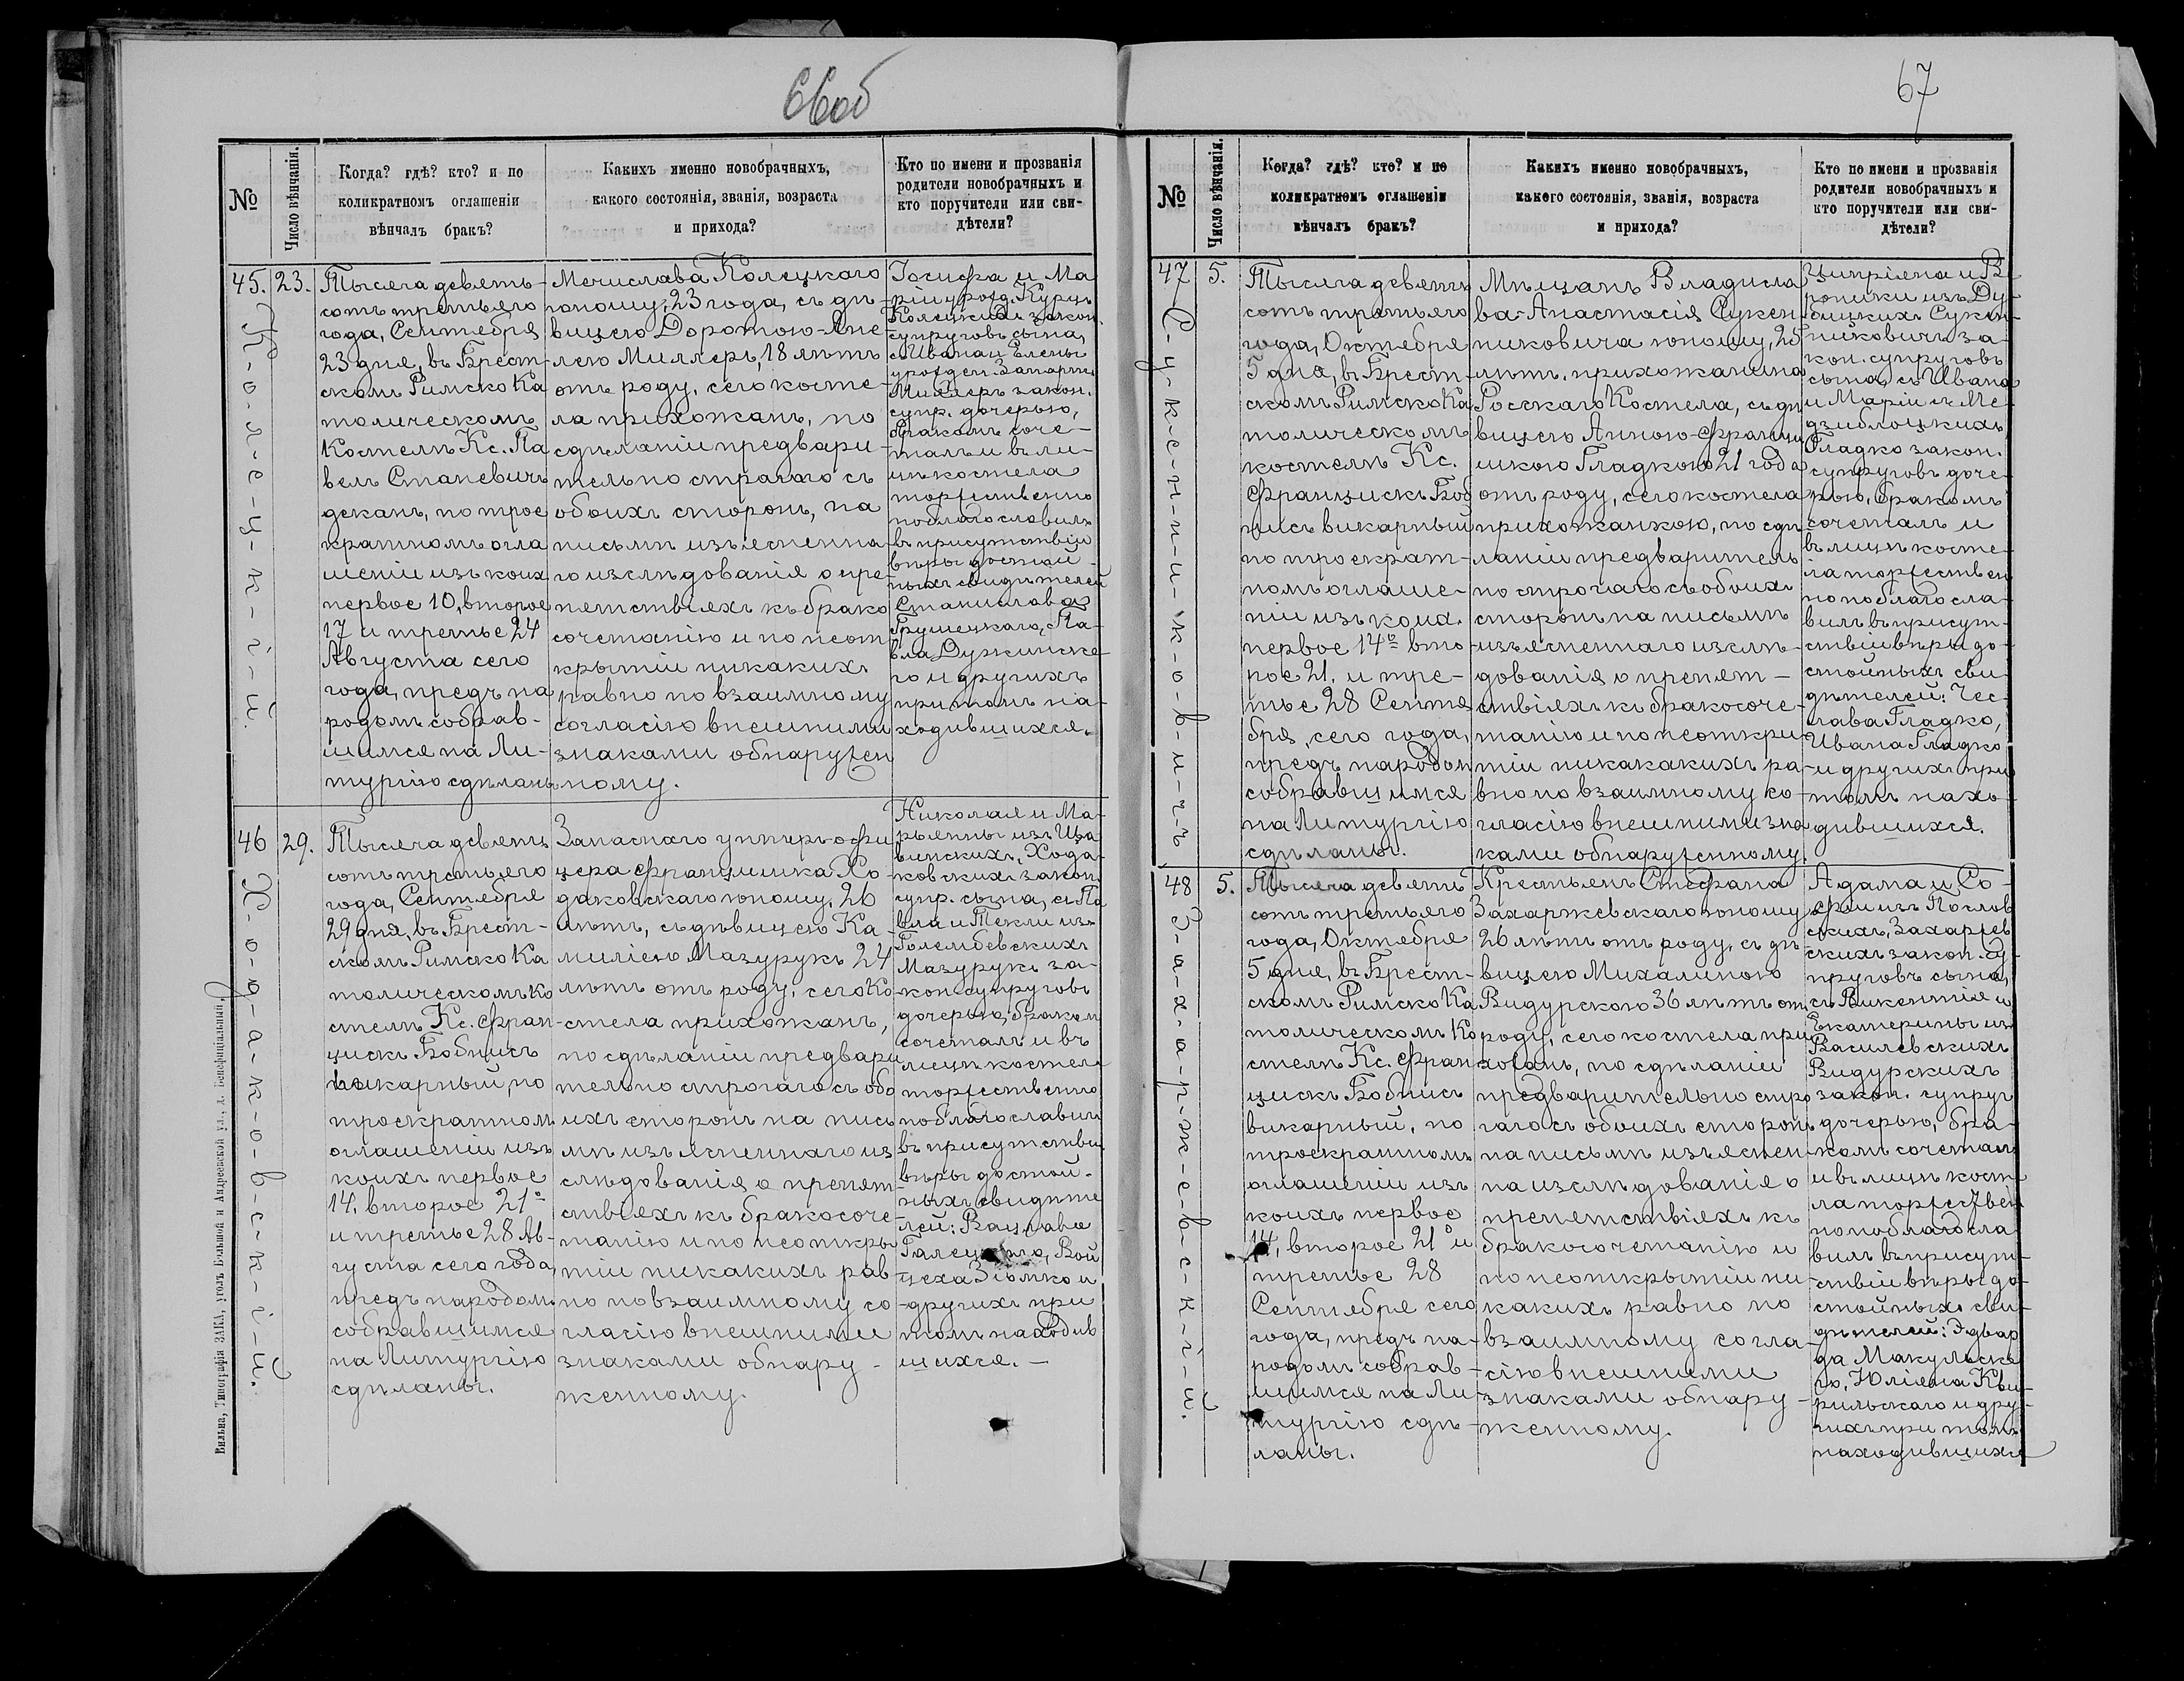 66об
№
Число вѣнчанія.
Когда? гдѣ? кто? и по
коликратномъ оглашеніи
вѣнчалъ бракъ?
Какихъ именно новобрачныхъ,
какого состоянія, званія, возраста
и прихода?
Кто по имени и прозванія
родители новобрачныхъ и
кто поручители или сви-
дѣтели?
45.
К-о-л-е-ц-к-і-й.
23.
Тысяча девять-
сотъ третьяго
года, Сентября
23 дня, въ Брест-
скомъ Римско Ка
толическомъ
Костелѣ Кс. Па
велъ Станевичъ
деканъ, по трое
кратномъ огла
шеніи изъ коих
первое 10, второе
17 и третье 24
Августа сего
года, предъ на
родомъ собрав-
шимся на Ли-
тургію сдѣланъ
Мечислава Колецкаго
юношу, 23 года, съ дѣ-
вицею Доротою-Ане
лею Миллеръ, 18 лѣтъ
отъ роду, сего косте-
ла прихожанъ, по
сдѣланіи предвари-
тельно строгаго съ
обоихъ сторонъ, на
письмѣ изъясненна-
го изслѣдованія о пре-
пятствіяхъ къ брако
сочетанію и по неот
крытіи никакихъ
равно по взаимному
согласію внешними
знаками обнаружен
ному.
Іосифа и Ма
ріи урожд. Курцъ
Колецкихъ закон.
супруговъ сына,
съ Ивана и Елены
урожден.
Миллеръ закон.
супр. дочерью,
бракомъ соче-
талъ и въ ли-
цѣ костела
торжественно
поблагословилъ
въ присутствіи
вѣры достой-
ныхъ свидѣтелей
Станислава
Грушецкаго, Па-
вла Дужинска-
го и другихъ
при томъ на-
ходившихся.
46
Х-о-д-а-к-о-в-с-к-і-й.
29.
Тысяча девять
сотъ третьяго
года, Сентября
29 дня, въ Брест-
скомъ Римско Ка
толическомъ Ко
стелѣ Кс. Фран
цискъ Бобнисъ
викарный, по
троекратном
оглашеніи изъ
коихъ первое
14, второе 21°
и третье 28 Ав-
густа сего года,
предъ народом
собравшимся
на Литургію
сдѣланы.
Запаснаго унтеръ-офи
цера Францишка Хо-
даковскаго юношу, 26
лѣтъ, съ дѣвицею Ка-
милiею Мазурукъ 24
лѣтъ отъ роду, сего Ко
стела прихожанъ,
по сдѣланіи предвари
тельно строгаго съ обо
ихъ сторонъ на пись
мѣ изъясненнаго из
слѣдованія о препят
ствіяхъ къ бракосоче
танію и по неоткры
тіи никакихъ рав-
но по взаимному со
гласію внешними
знаками обнару-
женному.
Николая и Ма-
рьянны изъ
Хода-
ковскихъ закон.
супр. сына, съ Па
вла и Теклы изъ
Голембевскихъ
Мазурукъ за-
кон. супруговъ
дочерью, браком
сочеталъ и въ
лицѣ костела
торжественно
поблагославилъ
въ присутствіи
вѣры достой-
ныхъ свидѣте
лей: Вацлава
Вой
цеха Зіомко и
другихъ при
томъ находив
шихся.—
Вильна, Типографія ЗАКА, уголъ Большой и Андреевской ул., д. Бенефиціальный.
67
№
Число вѣнчанія.
Когда? гдѣ? кто? и по
коликратномъ оглашеніи
вѣнчалъ бракъ?
Какихъ именно новобрачныхъ,
какого состоянія, званія, возраста
и прихода?
Кто по имени и прозванія
родители новобрачныхъ и
кто поручители или сви-
дѣтели?
47
С-у-к-е-н-н-и-к-о-в-и-ч-ъ
5.
Тысяча девять
сотъ третьяго
года, Октября
5 дня, въ Брест-
скомъ Римско Ка
толическомъ
костелѣ Кс.
Францискъ Боб
нисъ викарный
по троекрат-
номъ оглаше-
ніи изъ коих
первое 14° вто
рое 21. и тре-
тье 28 Сентя
бря, сего года,
предъ народом
собравшимся
на Литургію
сдѣланы.
Мѣщанъ Владисла
ва-Анастасія Сукен-
никовича юношу, 25
лѣтъ, прихожанина
Росскаго Костела, съ дѣ
вицею Анною-Франци
шкою Гладкою 21 года
отъ роду, сего костела
прихожанкою, по сдѣ
ланіи предваритель
но строгаго съ обоихъ
сторонъ на письмѣ
изъясненнаго изслѣ-
дованія о препят-
ствіяхъ къ бракосоче-
танію и по неоткры
тіи никакакихъ ра
вно по взаимному со
гласію внешними зна
ками обнаруженному.
Ципріяна и Ве
роники изъ Ду-
бицкихъ Сукен-
никовичъ за-
кон. супруговъ
сына, съ Ивана
и Маріи съ Ме-
дзиблоцкихъ
Гладко закон.
супруговъ доче-
рью, бракомъ
сочеталъ и
въ лицѣ косте-
ла торжествен
но поблагосла-
вилъ въ присут-
ствіи вѣры до-
стойныхъ сви-
дѣтелей: Чес-
лава Гладко,
Ивана Гладко
и другихъ при
томъ нахо-
дившихся.
48
З-а-х-а-р-ж-е-в-с-к-і-й.
5.
Тысяча девять
сотъ третьяго
года, Октября
5 дня, въ Брест-
скомъ Римско Ка
толическомъ Ко
стелѣ Кс. Фран
цискъ Бобнисъ
викарный, по
троекратномъ
оглашеніи изъ
коихъ первое
14, второе 21° и
третье 28
Сентября сего
года, предъ на-
родомъ собрав-
шимся на Ли-
тургію сдѣ-
ланы.
Крестьянъ Стефана
Захаржевскаго юношу
26 лѣтъ отъ роду, съ дѣ-
вицею Михалиною
Видурскою 36 лѣтъ от
роду, сего костела при
хожанъ, по сдѣланіи
предварительно стро
гаго съ обоихъ сторонъ
на письмѣ изъяснен
на изслѣдованія о
препятствіяхъ къ
бракосочетанію и
по неоткрытіи ни
какихъ равно по
взаимному согла-
сію внешними
знаками обнару-
женному.
Адама и Со-
фіи изъ Послов
скихъ, Захаржев
скихъ закон. су-
пруговъ сына,
съ Викентія и
Екатерины из
Василевскихъ
Видурскихъ
закон. супруг
дочерью, бра-
комъ сочетал
и въ лицѣ косте
ла торжествен
но поблагосла
вилъ въ присут-
ствіи вѣры до-
стойныхъ сви-
дѣтелей: Эдвар
да Макульска
го, Юліяна Кви-
рильскаго и дру-
гихъ при томъ
находившихся